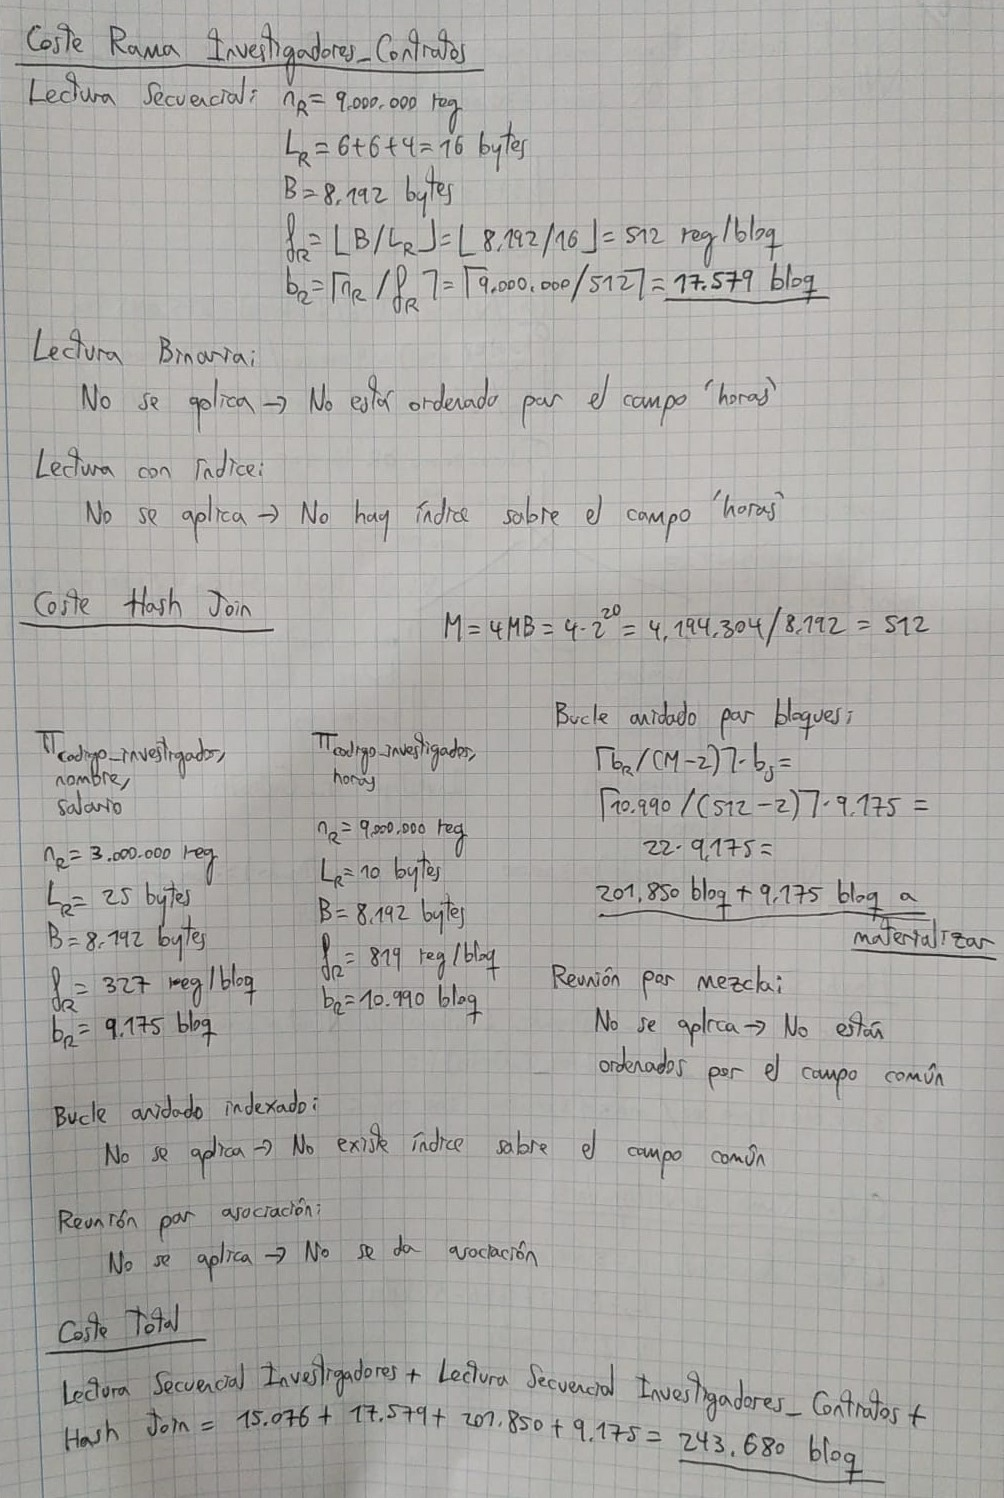 Coste Rama Investigadores_Contratos
Lectura Secuencial: nR = 9.000.000 reg
LR = 6+6+4 = 16 bytes
B = 8.192 bytes
fR = ⌊B/LR⌋ = ⌊8.192/16⌋ = 512 reg/bloq
bR = ⌈nR/fR⌉ = ⌈9.000.000/512⌉ = 17.579 bloq
Lectura Binaria:
No se aplica → No está ordenado por el campo 'horas'
Lectura con índice:
No se aplica → No hay índice sobre el campo 'horas'
Coste Hash Join
M = 4MB = 4·2^20 = 4.194.304/8.192 = 512
πcodigo_investigador,
nombre,
salario
nR = 3.000.000 reg
LR = 25 bytes
B = 8.192 bytes
fR = 327 reg/bloq
bR = 9.175 bloq
πcodigo_investigador,
horas
nR = 9.000.000 reg
LR = 10 bytes
B = 8.192 bytes
fR = 819 reg/bloq
bR = 10.990 bloq
Bucle anidado por bloques:
⌈bR/(M-2)⌉·bS =
⌈10.990/(512-2)⌉·9.175 =
22·9.175 =
201.850 bloq + 9.175 bloq a
materializar
Reunión por mezcla:
No se aplica → No están
ordenados por el campo común
Bucle anidado indexado:
No se aplica → No existe índice sobre el campo común
Reunión por asociación:
No se aplica → No se da asociación
Coste Total
Lectura Secuencial Investigadores + Lectura Secuencial Investigadores_Contratos +
Hash Join = 15.076 + 17.579 + 201.850 + 9.175 = 243.680 bloq